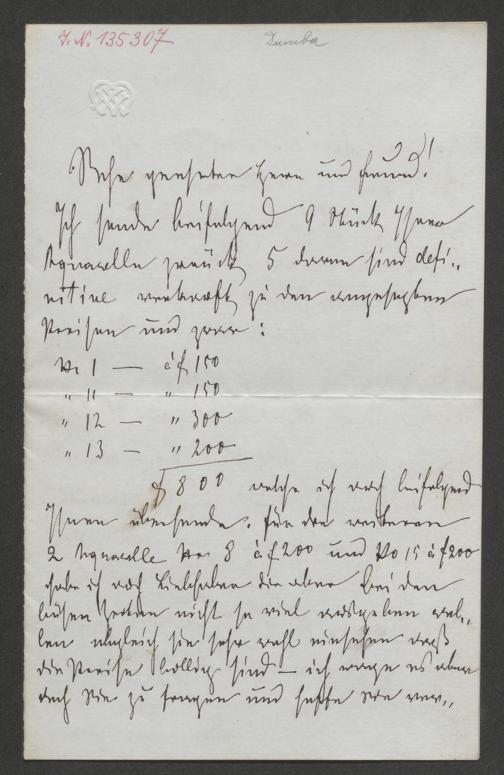 J. N. 135307
Dumba
Sehr geehrter Herr und Freund!
Ich sende beifolgend 9 Stück Ihrer
Aquarelle zurück, 5 davon sind defi„
nitive verkauft, zu den angesetzten
Preisen und zwar:
No 1 — à f 150
„ 11 — „ 150
„ 12 — „ 300
„ 13 — „ 200
f 800 welche ich auch beifolgend
Ihnen übersende. Für die weiteren
2 Aquarelle No 8 à f 200 und No 15 à f 200
habe ich auch Liebhaber die aber bei den
bösen Zeiten nicht so viel ausgeben wol„
len obgleich sie sehr wohl einsehen daß
die Preise billig sind — ich wage es aber
doch Sie zu fragen und hoffe Sie ver„